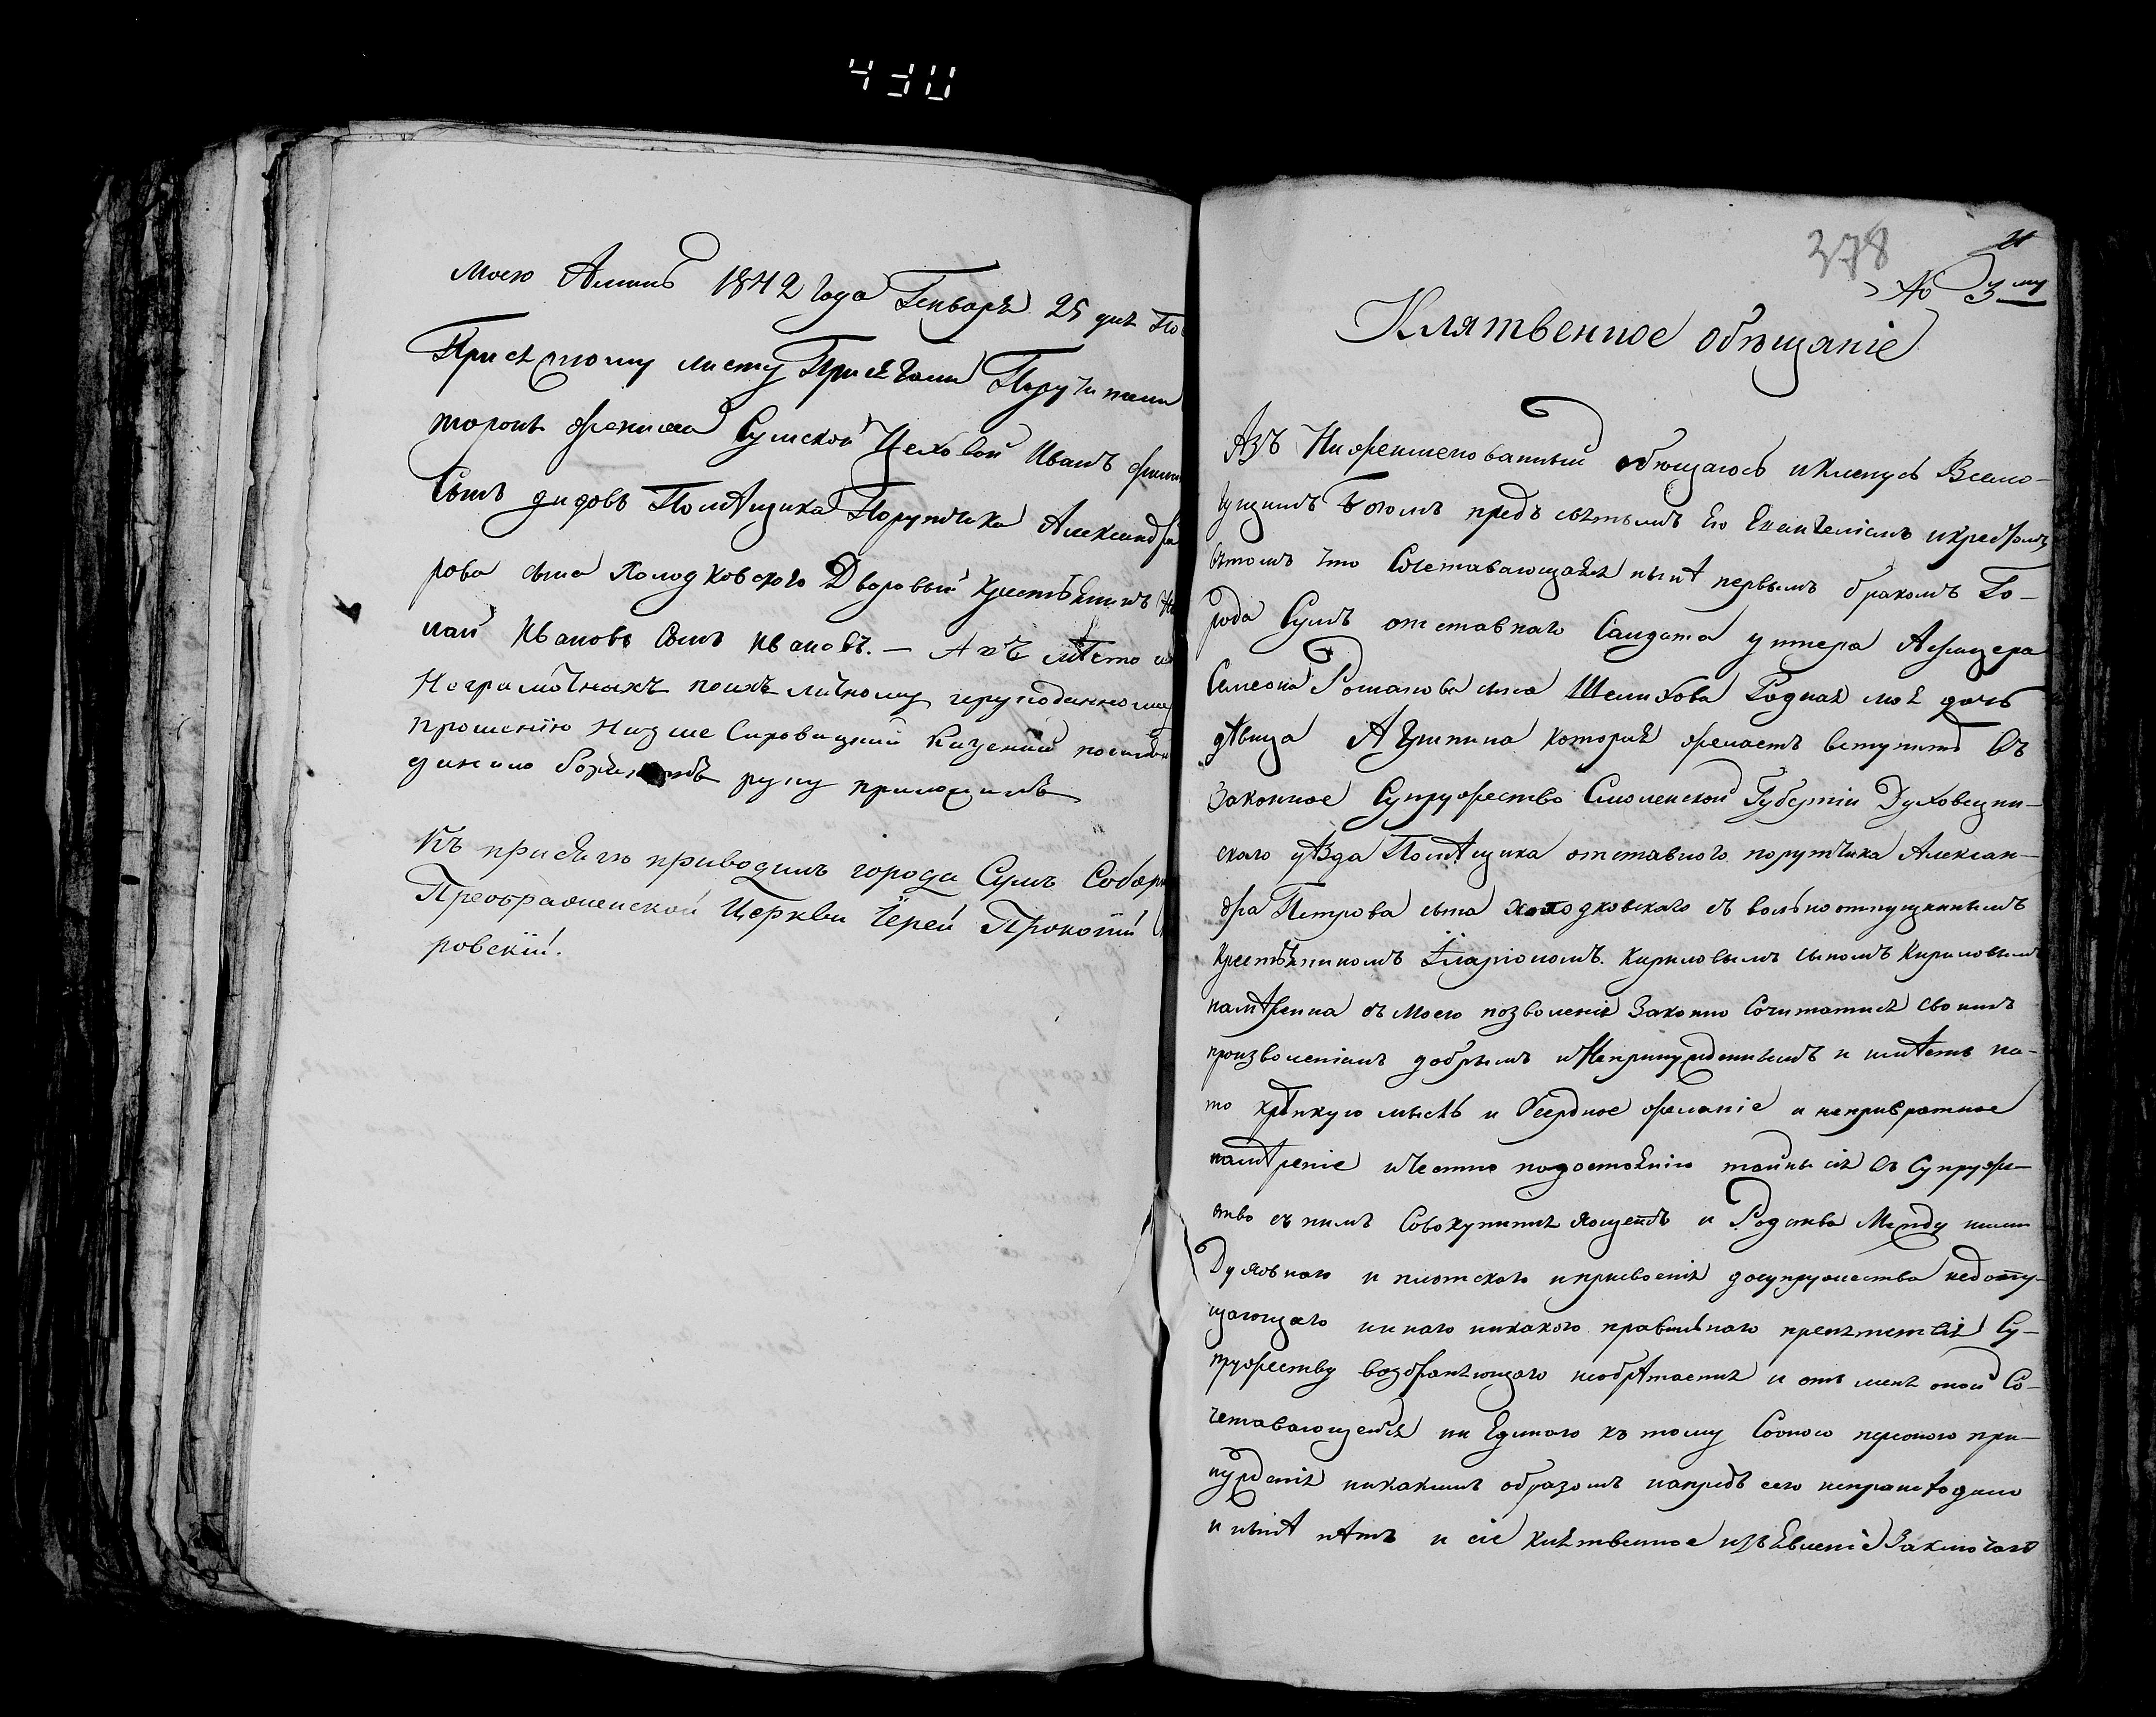 430
моею Аминь 1842 года Генваря 25 дня По
Присяжному листу Присягали Поручители
тороне жениха Сумской Цеховой Иванъ
Сынъ дидовъ Помѣщика Порутчика Александра
рова сына Холодковского Дворовый крестьянинъ
лай Ивановъ Сынъ Ивановъ. — А въ мѣсто
Неграмотныхъ поихъ личному
прошенію Низше Сировацкий Казенный
руку приложилъ
Къ присягѣ приводилъ города Сумъ Собор
Преображенской Церкви Іерей Прокопій
ровскій.
378
21
Къ 3му
Клятвенное обѣщаніе
Азъ Нижеименованный обѣщаюсь и кленусь Всемо-
гущимъ Богомъ предъ святымъ Его Евангеліемъ и крестомъ
въ томъ что Сочетавающаяся нынѣ первымъ бракомъ Го-
рода Сумъ отставнаго Салдата унтера Афицера
Симеона Романова сына Шелихова Родная моя дочь
дѣвица Агрипина которая желаетъ вступить въ
Законное Супружество Смоленской Губерніи Духовщин-
скаго уѣзда Помѣщика отставного порутчика Алексан-
дра Петрова сына Холодковскаго съ вольноотпущеннымъ
Крестьяниномъ Иларіономъ Кириловымъ сыномъ Кириловымъ
намѣренна съ моего позволенія Законно Сочитатися своимъ
произволеніемъ добрымъ и Непринужденнымъ и имѣетъ на-
то крѣпкую мысль и Усердное желаніе и непривратное
намѣреніе и честно по достоянію тайны сія въ Супруже-
ство съ нимъ Совокупитися хощетъ и Родства Между ними
Духовнаго и плотскаго и присвоенія до супружества недопу-
щающаго и инаго никакого правильнаго препятствія Су-
пружеству возбраняющаго необрѣтается и отъ меня оной Со-
четавающейся ни Единаго къ тому Собою при-
нужденія никакимъ образомъ напредъ сего непроисходило
и нынѣ нѣтъ и сіе клятвенное изъявленіе Заключаю